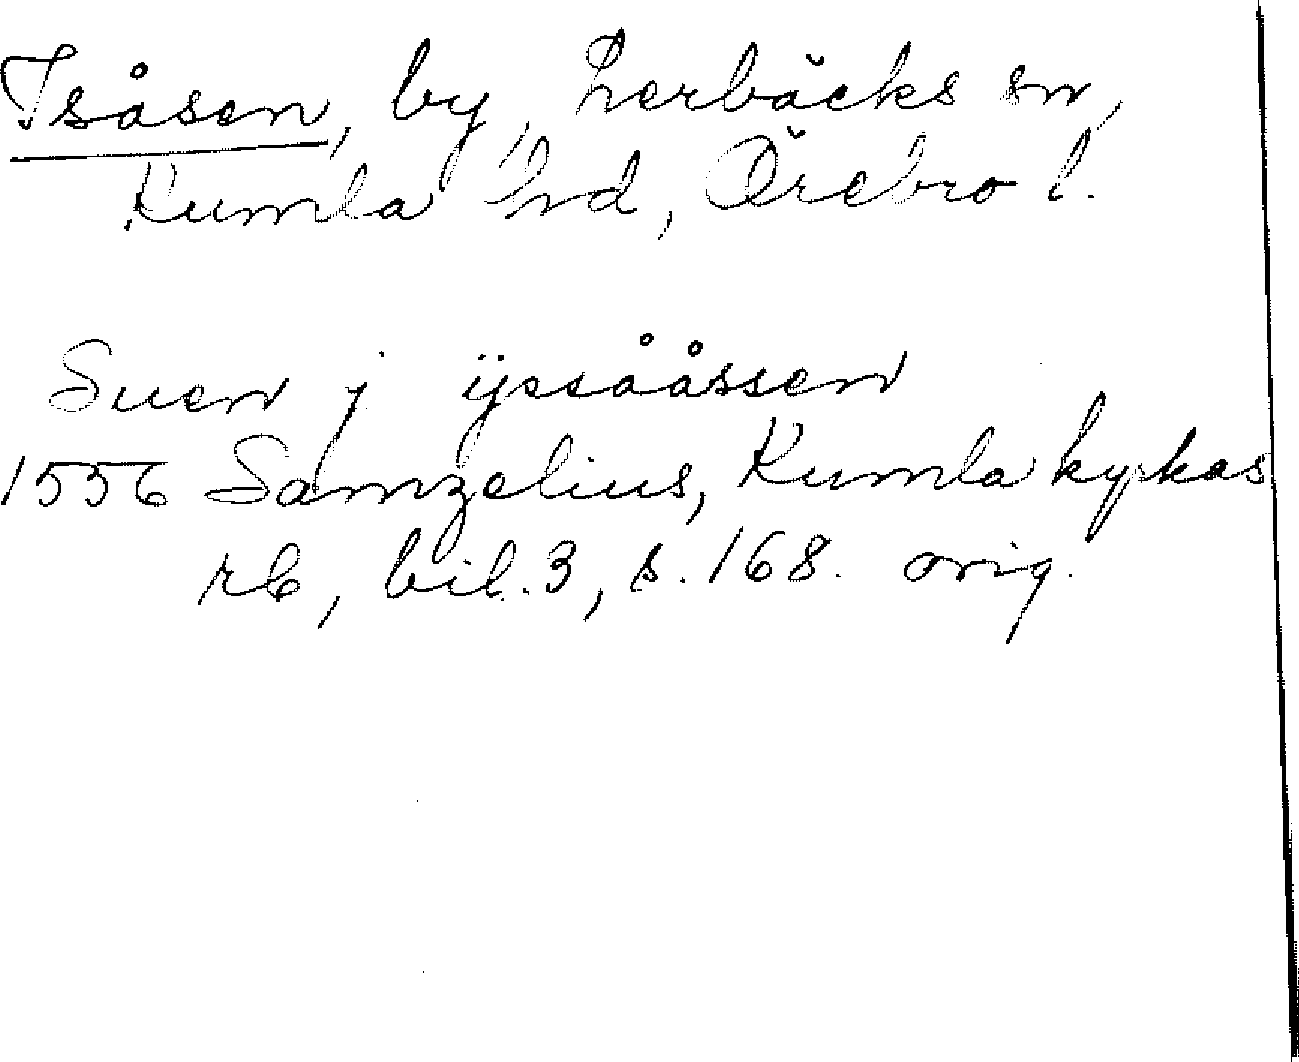 Isåsen, by, Lerbäcks sn,
Kumla hd, Örebro l.
Suen j ÿssååssen
1556 Samzelius, Kumla kyrkas
rb, bil. 3, s. 168. orig.